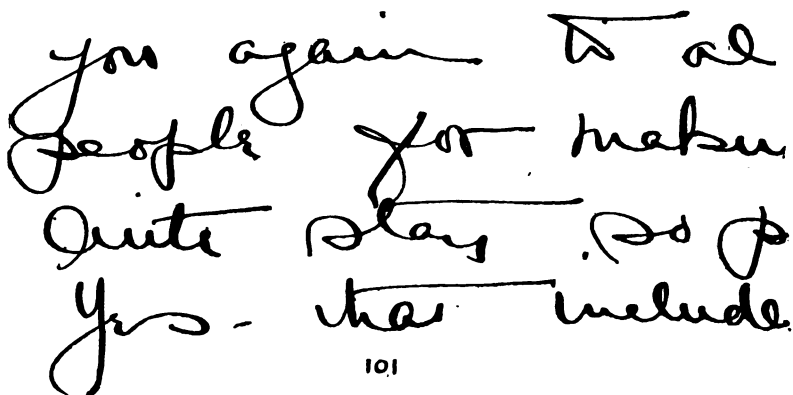 you again to al
people for makin
Quite play so p
Yes - that include
101